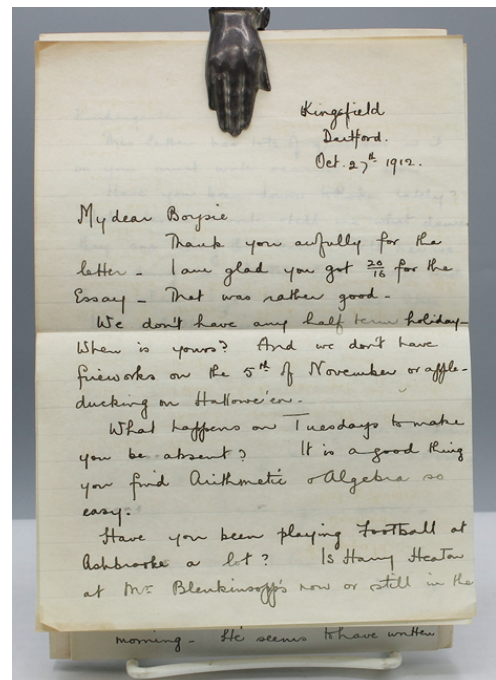 Kingsfield
Dartford.
Oct. 27th 1912.
My dear Boysie
Thank you awfully for the
letter - I am glad you got 20/16 for the
Essay - That was rather good -
We don't have any half term holiday -
When is yours? And we don't have
fireworks on the 5th of November or apple-
ducking on Hallowe'en.
What happens on Tuesdays to make
you be absent? It is a good thing
you find Arithmetic & Algebra so
easy.
Have you been playing Football at
Ashbrooke a lot? Is Harry Heaton
at Mr. Blenkinsopp's now or still in the
morning - He seems to have written